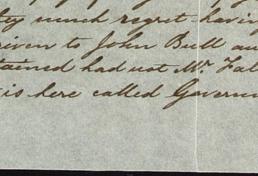 ty much regret having
given to John Bull au
tained had not Mr. Fal
is here called Governm